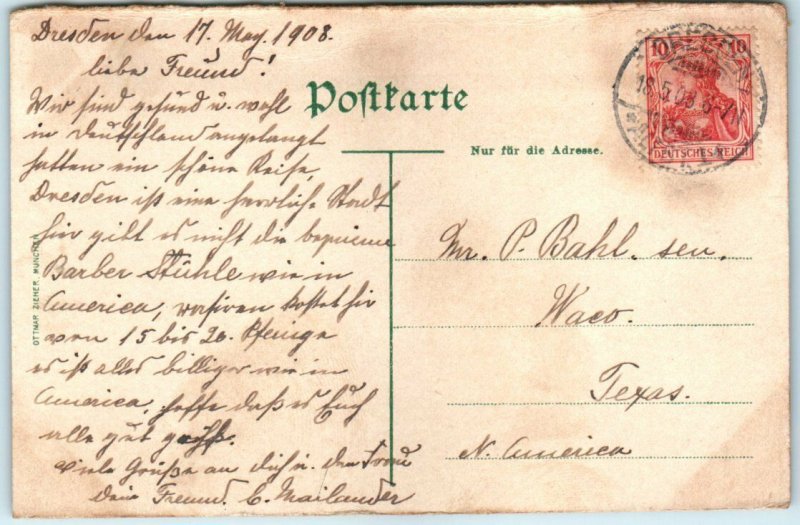 Dresden den 17. May. 1908.
liebe Freund!
Wir sind gesund u. wohl
in Deutschland angelangt
hatten ein schöne Reise,
Dresden ist eine herrliche Stadt
hier gibt es nicht die bequeme
Barber Stühle wie in
America, rasiren kostet hir
von 15 bis 20 Pfeinge
es ist alles billiger wie in
America, hoffe daß es Euch
alle gut geht.
viele Grüße an dich u. den
Dein Freund C. Mailander
Postkarte
Nur für die Adresse.
10 10
DEUTSCHES REICH
DRESDEN
18.5.08.
Mr. P. Bahl. sen.
Waco.
Texas.
N. America
OTTMAR ZIEHER, MÜNCHEN